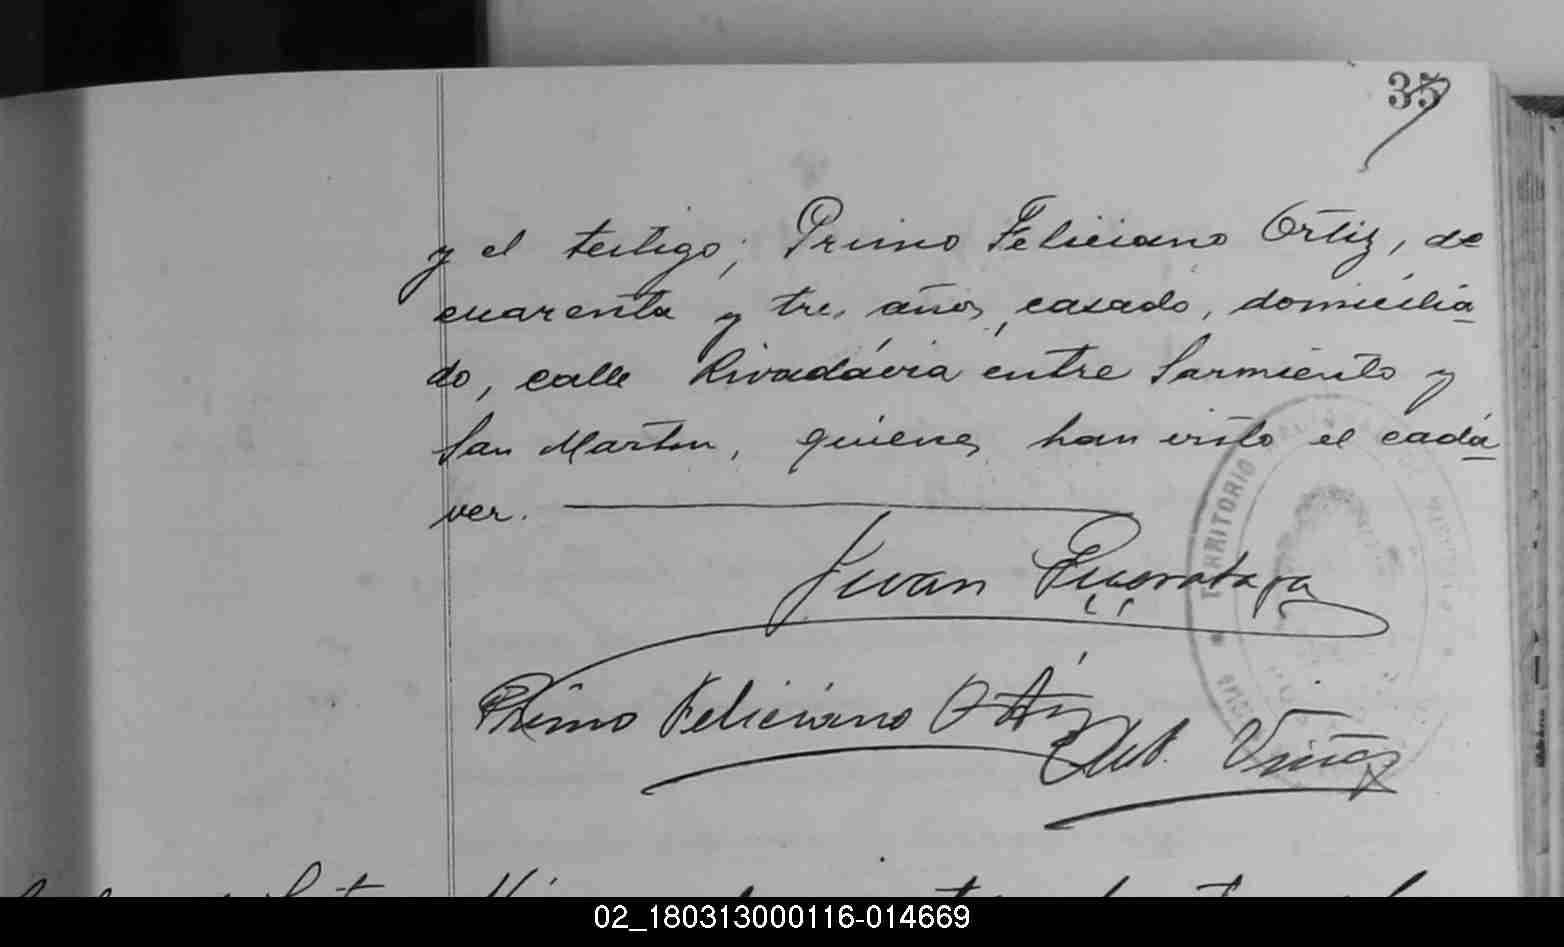 35
y el testigo; Primo Feliciano Ortiz, de
cuarenta y tres años, casado, domicilia
do, calle Rivadávia entre Sarmiento y
San Martin, quienes han visto el cadá
ver.
Juan
Primo Feliciano Ortiz
Viñas
TERRITORIO
02_180313000116-014669